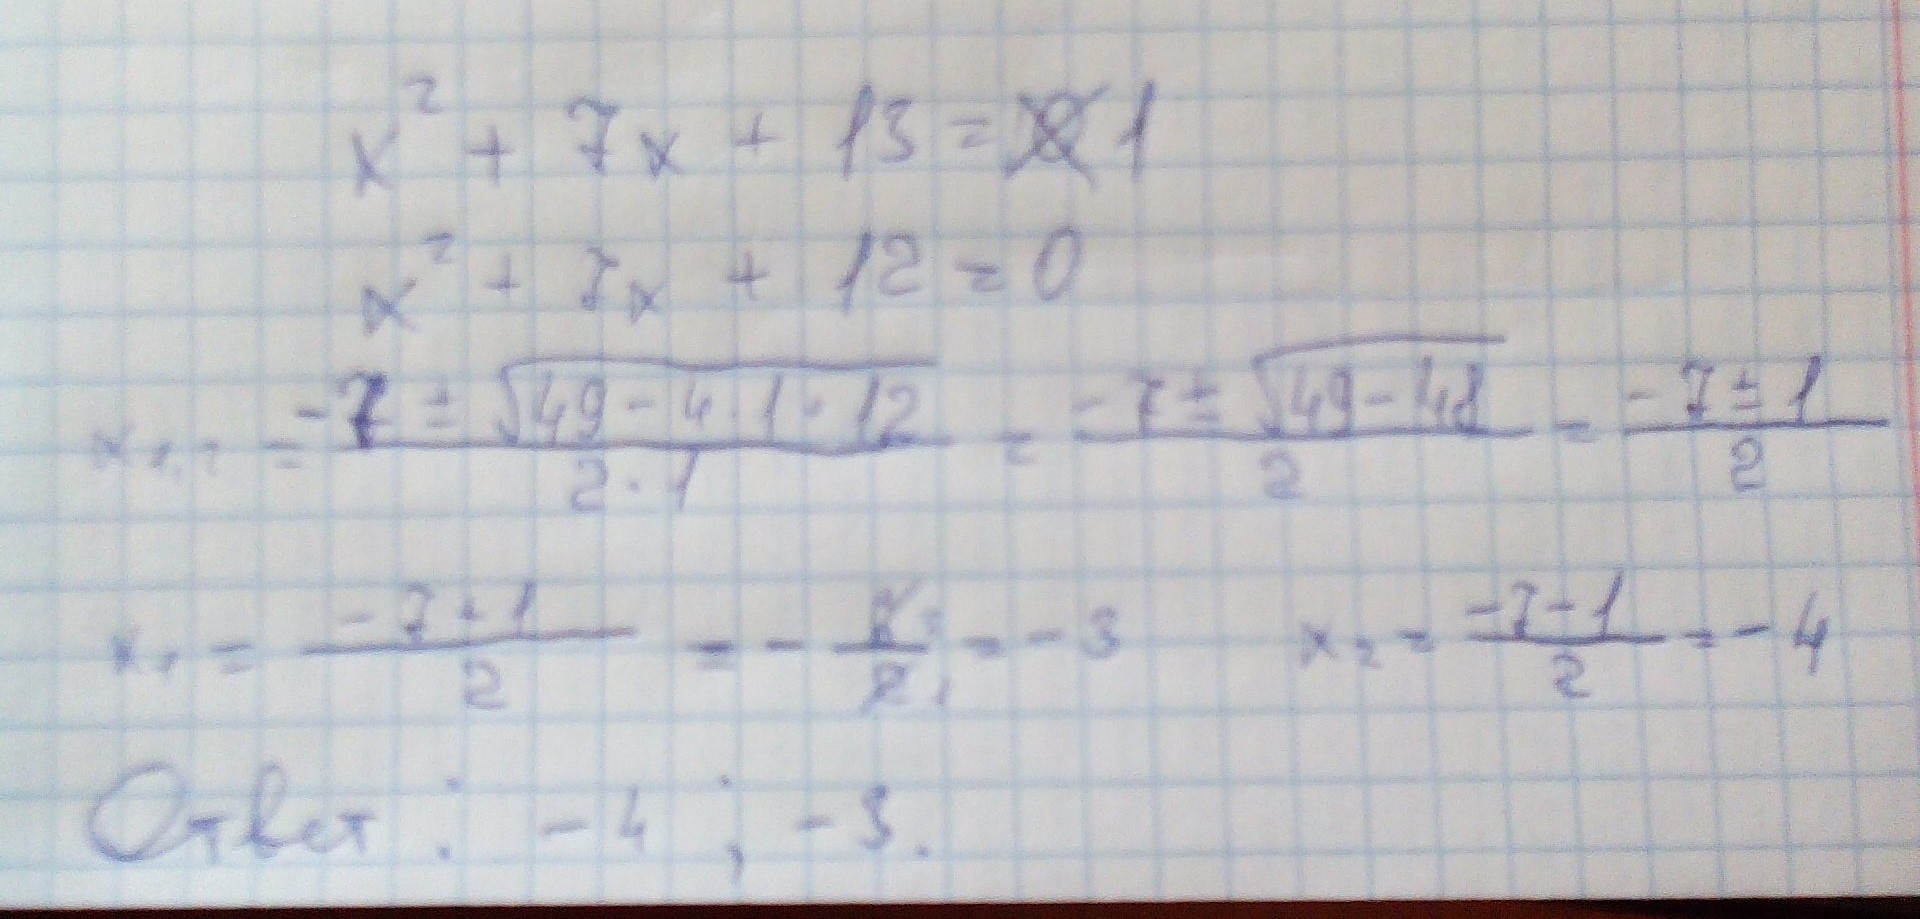 x² + 7x + 13 = 1
x² + 7x + 12 = 0
x₁,₂ = (-7 ± √(49 - 4·1·12))/(2·1) = (-7 ± √(49 - 48))/2 = (-7 ± 1)/2
x₁ = (-7 + 1)/2 = -6/2 = -3 x₂ = (-7 - 1)/2 = -4
Ответ: -4; -3.